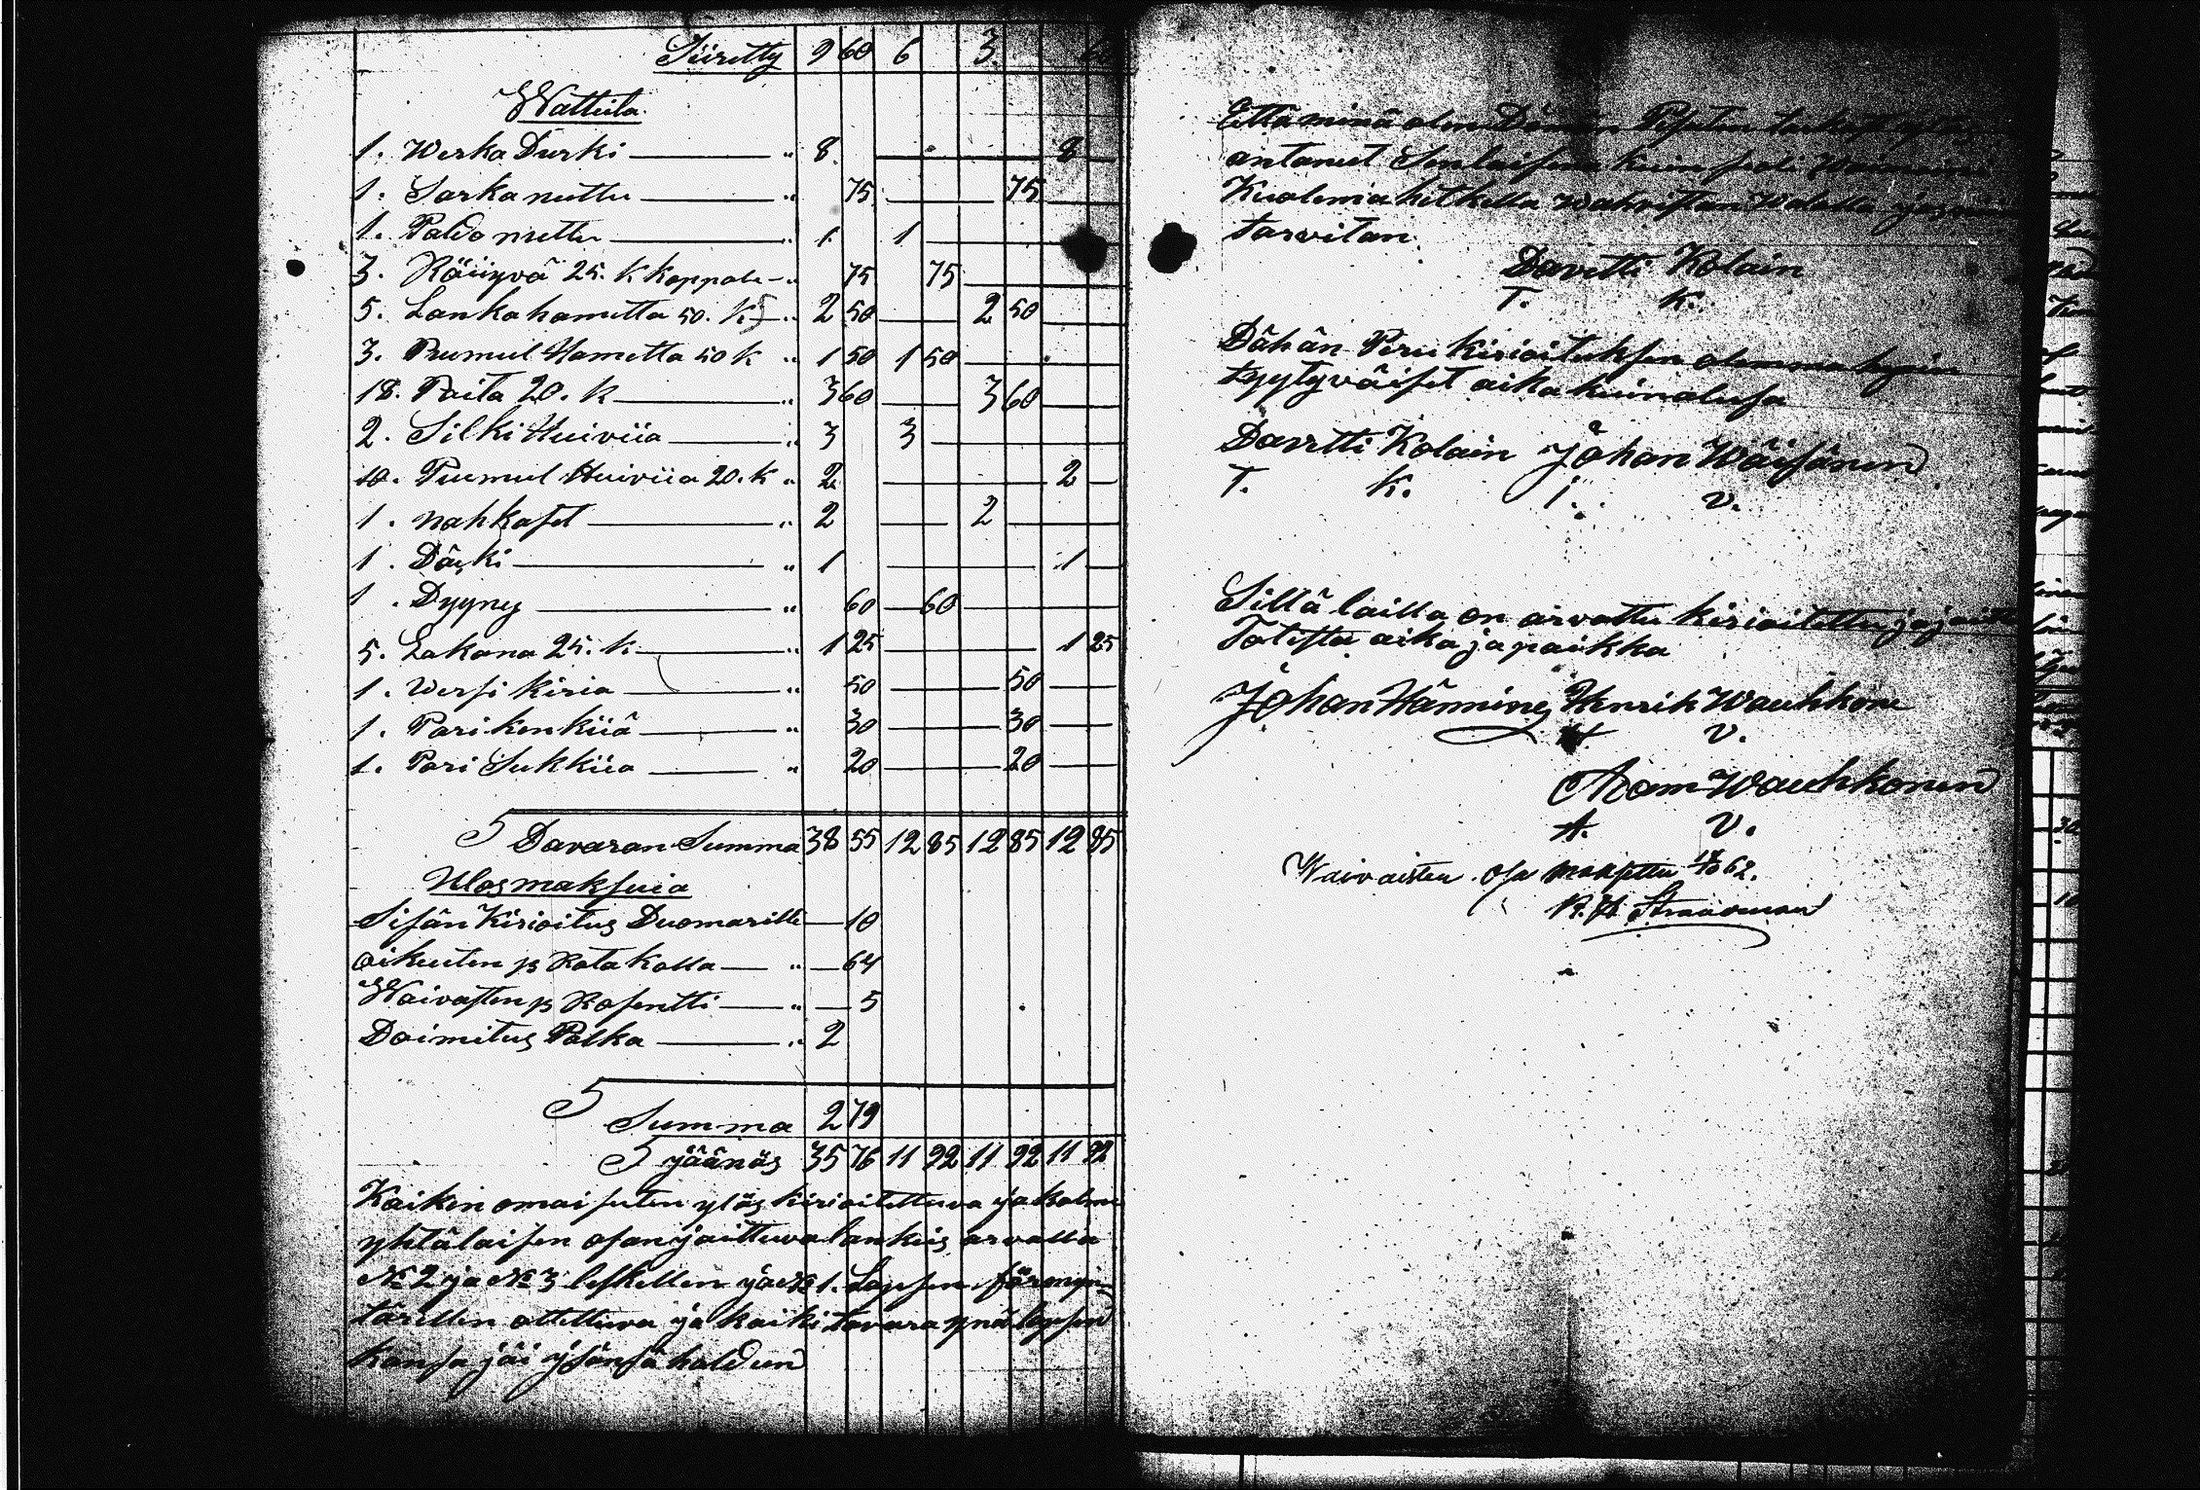 Siiretty 9 60 6 3
Watteita.
1. Werka Turki " 8. 8
1. Sarka nuttu " 75 75
1. Paldo nuttu " 1 1
3. Röiiyvä 25. k kappale " 75 75
5. Lanka hametta 50. k " 2 50 2 50
3. Pumul Hametta 50 k " 1 50 1 50
18. Paita 20. k " 3 60 3 60
2. Silki Huiviia " 3 3
10. Pumul Huiviia 20. k " 2 2
1. nahkaset " 2 2
1. Däcki " 1 1
1. Dyyny " 60 60
5. Lakana 25. k " 1 25 1 25
1. Wersi kiria " 50 50
1. Pari kenkiiä " 30 30
1. Pari Sukkiia " 20 20
S Davaran Summa 38 55 12 85 12 85 12 85
Ulosmaksuia
Sisän Kirioitus Duomarille 10
oikeuten ja Rotakolla " 64
Waivasten ja Rosentti " 5
Doimitus Palka " 2
S Summa 2 79
S jäänös 35 76 11 92 11 92 11 92
Kaiken omaisuten ylös kirioitettuva ja kolme
yhtälaisen osan jaittuva lankeis arvalla
No 2 ja No 3 leskellen ja No 1. Lapsenförmyn=
tärillen otettuva ja kaiki tavara ynä lapsen
kansa jäi Jsänsä haldun
Että minä olen
antanut Senlaisena kuin se oli
Kuolema hetkellä wahvistan Walalla jos
tarvitan.
Davetti Kolain
T. K.
Dähän Peru kirioituksen olemma hyvin
tyytyväiset aika kuin alusa
Davetti Kolain Johan Wäisänen
T. K. J. V.
Sillä lailla on arvattu kirioitettu ja
Totista aika ja paikka
Johan Hänninen Henrik Wauhkone
H. V.
Aram Wauhkonen
A. V.
Waivaisten osa maksettu 62.